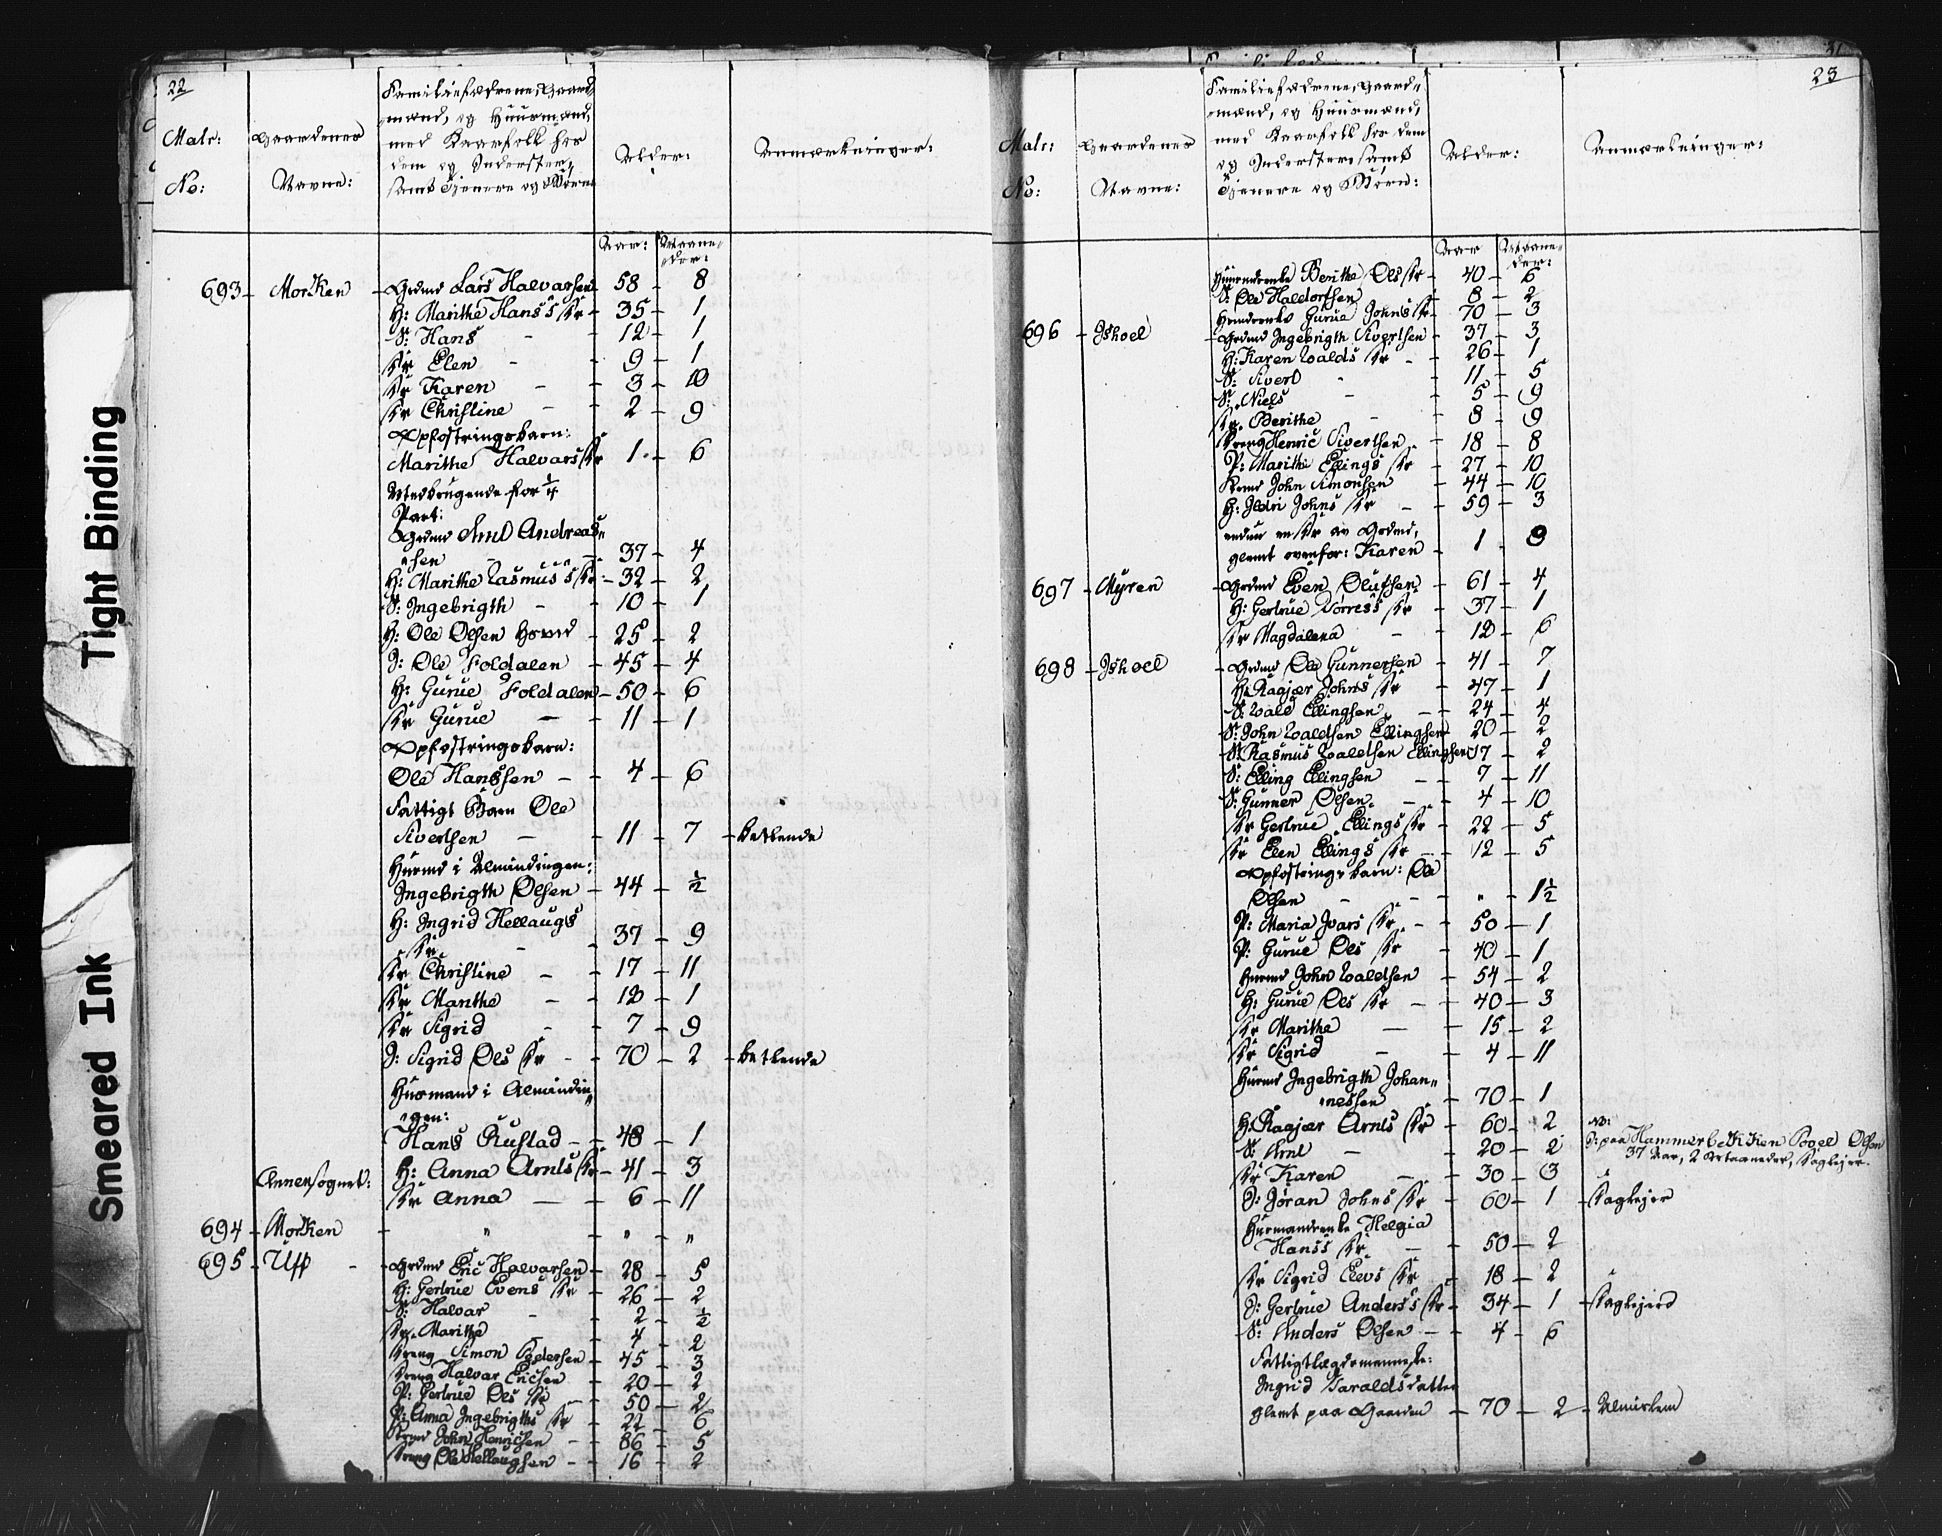 Tight Binding
Smeared Ink
22
Matr: No:
Gaardenes Navne:
Familiefædrene, Gaard-
mænd, og Huusmænd,
med Kaarfolk hos
dem og Inderster,
samt Tjenere og Børn
Alder:
Anmærkninger:
Aar: Maane-
der:
693 - Morken - Grdmd Lars Halvorsen - 58 - 8
H: Marithe Hans's Dr - 35 - 1
S: Hans - 12 - 1
Dr Elen - 9 - 1
Dr Karen - 3 - 10
Dr Christine - 2 - 9
Opfostringsbarn:
Marithe Halvors Dr 1 - 6
Medbrugende for 1/4
Part:
Grdmd Arnt Andreas-
sen - 37 - 4
H: Marithe Rasmus's Dr - 32 - 2
S: Ingebrigth - 10 - 1
H: Ole Olsen Hoved - 25 - 2
I: Ole Foldalen - 45 - 4
H: Gurue Foldalen - 50 - 6
Dr Gurue - 11 - 1
Opfostringsbarn:
Ole Hanssen - 4 - 6
Fattigt Barn Ole
Sivertsen - 11 - 7 - betlende
Husmd i Almindingen:
Ingebrigth Olsen - 44 - ½
H: Ingrid Hellaugs
Dr - 37 - 9
Dr Christine - 17 - 11
Dr Marithe - 12 - 1
Dr Sigrid - 7 - 9
I: Sigrid Ols Dr - 70 - 2 - betlende
Husmand i Almindin-
gen:
Hans Rustad - 48 - 1
Annensognet: H: Anna Arnts Dr - 41 - 3
Dr Anna - 6 - 11
694 - Morken - " - " - "
695 - Uff - Grdmd Eric Halvorsen - 28 - 5
H: Gertrue Evens Dr - 26 - 2
S: Halvor - 2 - ½
Dr Marithe - 4 - 2
Simon Pedersen - 45 - 3
Halvor Ericsen - 20 - 2
P: Gertrue Ols Dr - 50 - 2
P: Anna Ingebrigths Dr - 22 - 6
John Henricsen - 86 - 5
Ole Hellaugsen - 16 - 2
23
Matr: No:
Gaardenes Navne:
Familiefædrene, Gaard-
mænd, og Huusmænd,
med Kaarfolk hos dem
og Inderster, samt
Tjenere og Børn:
Alder:
Anmærkninger:
Aar Maane-
der:
Huusenke Berithe Ols Dr - 40 - 6
S: Ole Haldorsen - 8 - 2
Gurue Johns Dr - 70 - 3
696 - Ishoel - Grdmd Ingebrigth Sivertsen - 37 - 3
H: Karen Valds Dr - 26 - 1
S: Sivert - 11 - 5
S: Niels - 5 - 9
Dr Berithe - 8 - 9
Henric Sivertsen - 18 - 8
P: Marithe Ellings Dr - 27 - 10
John Simonsen - 44 - 10
H: Ildri Johns Dr - 59 - 3
endnu en Dr av Grdmd,
glemt ovenfor: Karen - 1 - 9
697 - Myren - Grdmd Even Olufsen - 61 - 4
H: Gertrue Torres's Dr - 37 - 1
Dr Magdalena - 12 - 6
698 - Ishoel - Grdmd Ole Gunnersen - 41 - 7
H: Ragjær Johns Dr - 47 - 1
S: Vald Ellingsen - 24 - 4
S: John Valdsen Ellingsen - 20 - 2
S: Rasmus Valdsen Ellingsen 17 - 2
S: Elling Ellingsen - 7 - 11
S: Gunner Olsen - 4 - 10
Dr Gertrue Ellings Dr - 22 - 5
Dr Elen Ellings Dr - 12 - 5
Opfostringsbarn: Ole
Olsen - " - 1½
P: Maria Ivars Dr - 50 - 1
P: Gurue Ols Dr - 40 - 1
Husmd John Valdsen - 54 - 2
H: Gurue Ols Dr - 40 - 3
Dr Marithe - 15 - 2
Dr Sigrid - 4 - 11
Husmd Ingebrigth Johan-
nessen - 70 - 1
H: Ragjær Arnts Dr - 60 - 2
S: Arnt - 20 - 2
I: paa Hammerbekken Povel Olsen
37 Aar, 2 Maaneder, Dagleier.
Dr Karen - 30 - 3
I: Jøran Johns Dr - 60 - 1 - Dagleier
Husmandsenke Helgia
Hans's Dr - 50 - 2
Dr Sigrid Elevs Dr - 18 - 2
I: Gertrue Anders's Dr - 34 - 1 - Dagleier
S: Anders Olsen - 4 - 6
Fattigtlægdsmenneske:
Ingrid Haraldsdatter
glemt paa Gaarden - 70 - 2 - Almissem